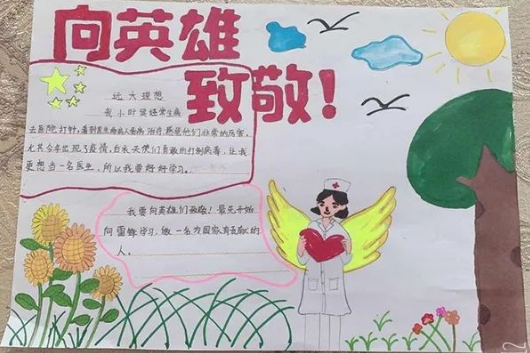 向英雄
致敬！
远大理想
我小时候经常生病
去医院打针，看到医生给病人看病治疗，感觉他们非常的厉害，
尤其今年出现了疫情，白衣天使们勇敢的打到病毒，让我
更想当一名医生，所以我要好好学习。
我要向英雄们致敬！最先开始
向雷锋学习，做一名为国家有贡献的
人。